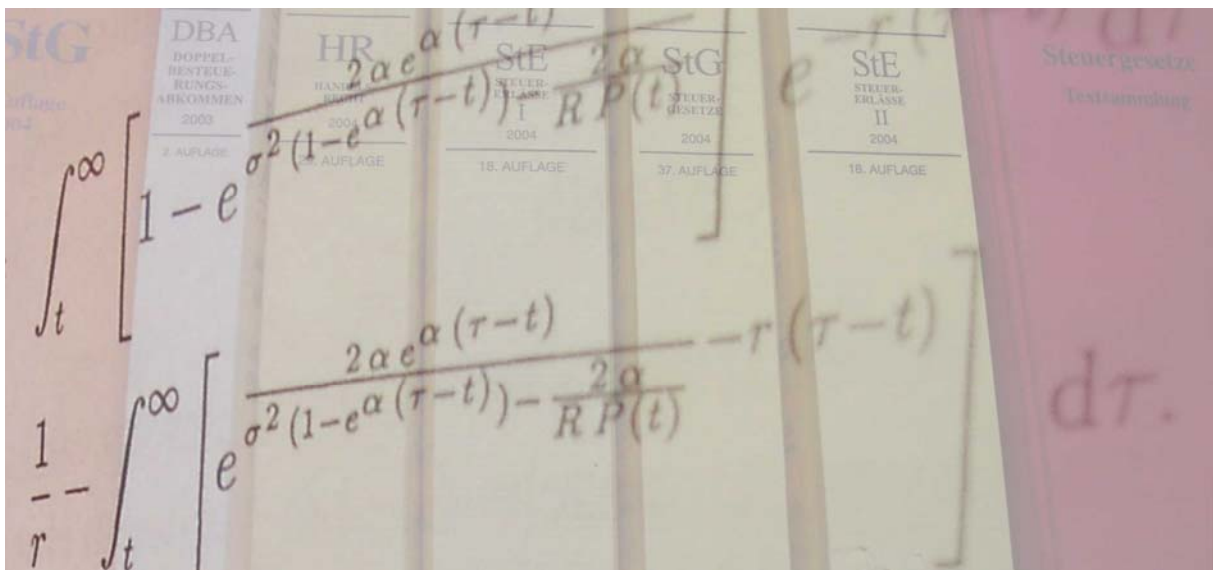 StG
Auflage
DBA
DOPPEL-
BESTEUE-
RUNGS-
ABKOMMEN
2003
2. AUFLAGE
HR
HANDELS
RECHT
2004
AUFLAGE
StE
STEUER-
ERLÄSSE
I
2004
18. AUFLAGE
StG
STEUER-
GESETZE
2004
37. AUFLAGE
StE
STEUER-
ERLÄSSE
II
2004
18. AUFLAGE
Steuergesetze
Textsammlung
∫_t^∞ [1 − e^{\frac{2 α e^{α (τ−t)}}{σ^2 (1−e^{α (τ−t)})− \frac{2 α}{R P(t)}}}] e^{−r (τ−t)} dτ
\frac{1}{r} − ∫_t^∞ [e^{\frac{2 α e^{α (τ−t)}}{σ^2 (1−e^{α (τ−t)})− \frac{2 α}{R P(t)}} −r (τ−t)}] dτ.